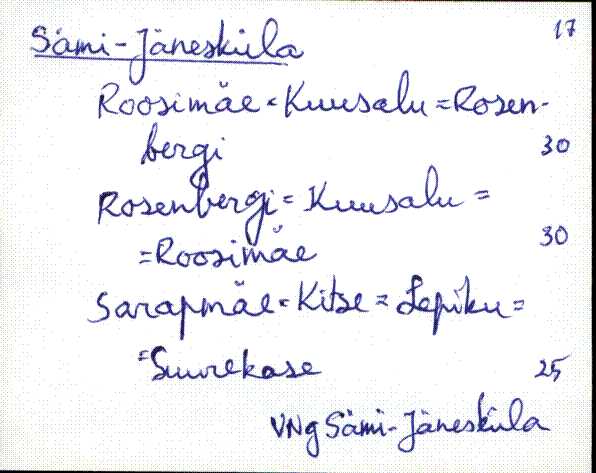 Sämi-Jänesküla 17
Roosimäe = Kuusalu = Rosen-
bergi 30
Rosenbergi = Kuusalu =
= Roosimäe 30
Sarapmäe = Kitse = Lepiku =
= Suurekase 25
VNg Sämi-Jänesküla